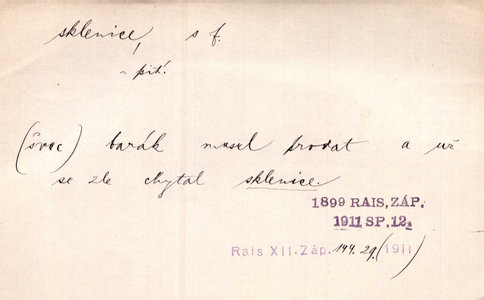 sklenice, s f.
= pití
(švec) barák musel prodat a už
se zle chytal sklenice.
1899 RAIS, ZÁP.
1911 SP. 12.
Rais XII. Záp. 144.29. (1911)